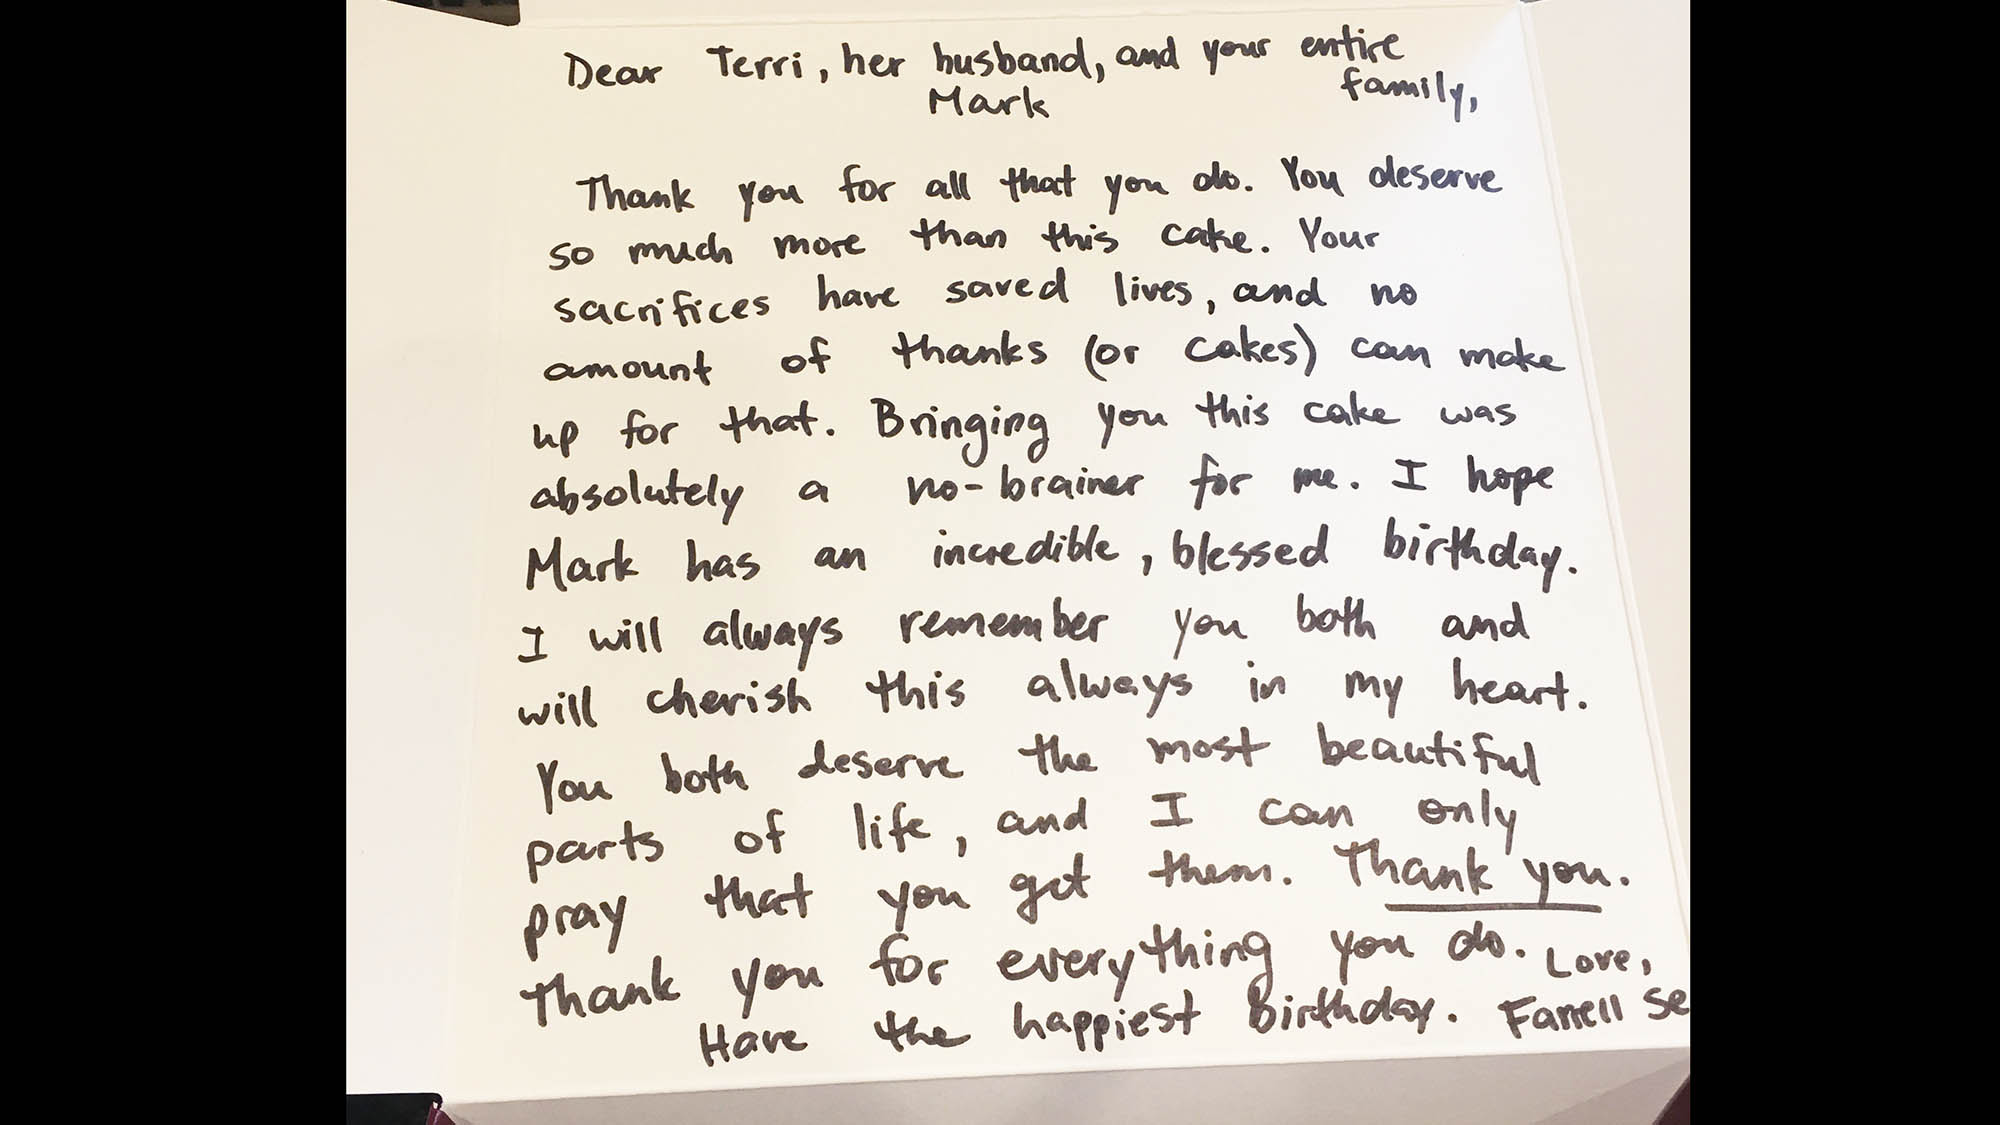 Dear Terri, her husband, and your entire
family,
Mark
Thank you for all that you do. You deserve
so much more than this cake. Your
sacrifices have saved lives, and no
amount of thanks (or cakes) can make
up for that. Bringing you this cake was
absolutely a no-brainer for me. I hope
Mark has an incredible, blessed birthday.
I will always remember you both and
will cherish this always in my heart.
You both deserve the most beautiful
parts of life, and I can only
pray that you get them. Thank you.
Thank you for everything you do. Love,
Have the happiest birthday. Farrell Se